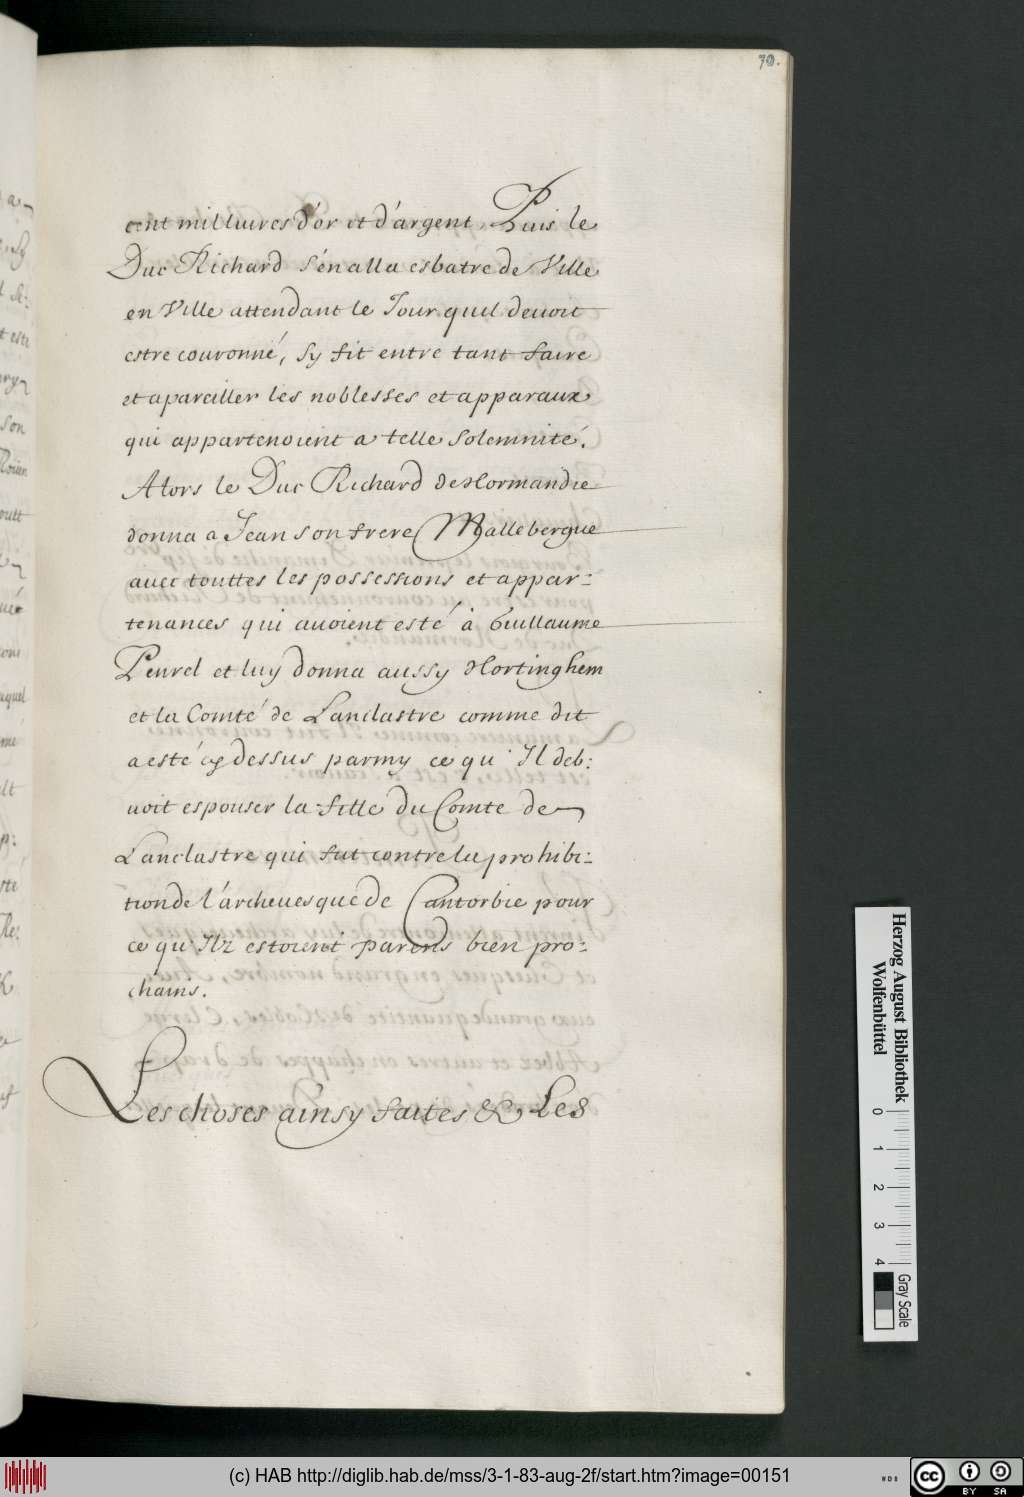 70.
cent mil liures d'or et d'argent, Puis le
Duc Richard s'en alla esbatre de Ville
en Ville attendant le Jour quil deuoit
estre couronné, sy fit entre tant faire
et apareiller les noblesses et apparaux
qui appartenoient a telle solemnité.
Alors le Duc Richard de Normandie
donna a Jean son frere Mallebergue
auec touttes les possessions et appar-:
tenances qui auoient esté à Guillaume
Peurel et luy donna aussy Nortinghem
et la Comté de Lanclastre comme dit
a esté cy dessus parmy ce qu'Il deb:
uoit espouser la fille du Comte de
Lanclastre qui fut contre la prohibi-:
tion de l'archeuesque de Cantorbie pour
ce qu'Ilz estoient parens bien pro-:
chains.
Les choses ainsy faites & Les
Herzog August Bibliothek
Wolfenbüttel
0 1 2 3 4
Gray Scale
(c) HAB http://diglib.hab.de/mss/3-1-83-aug-2f/start.htm?image=00151
WDB
cc BY SA